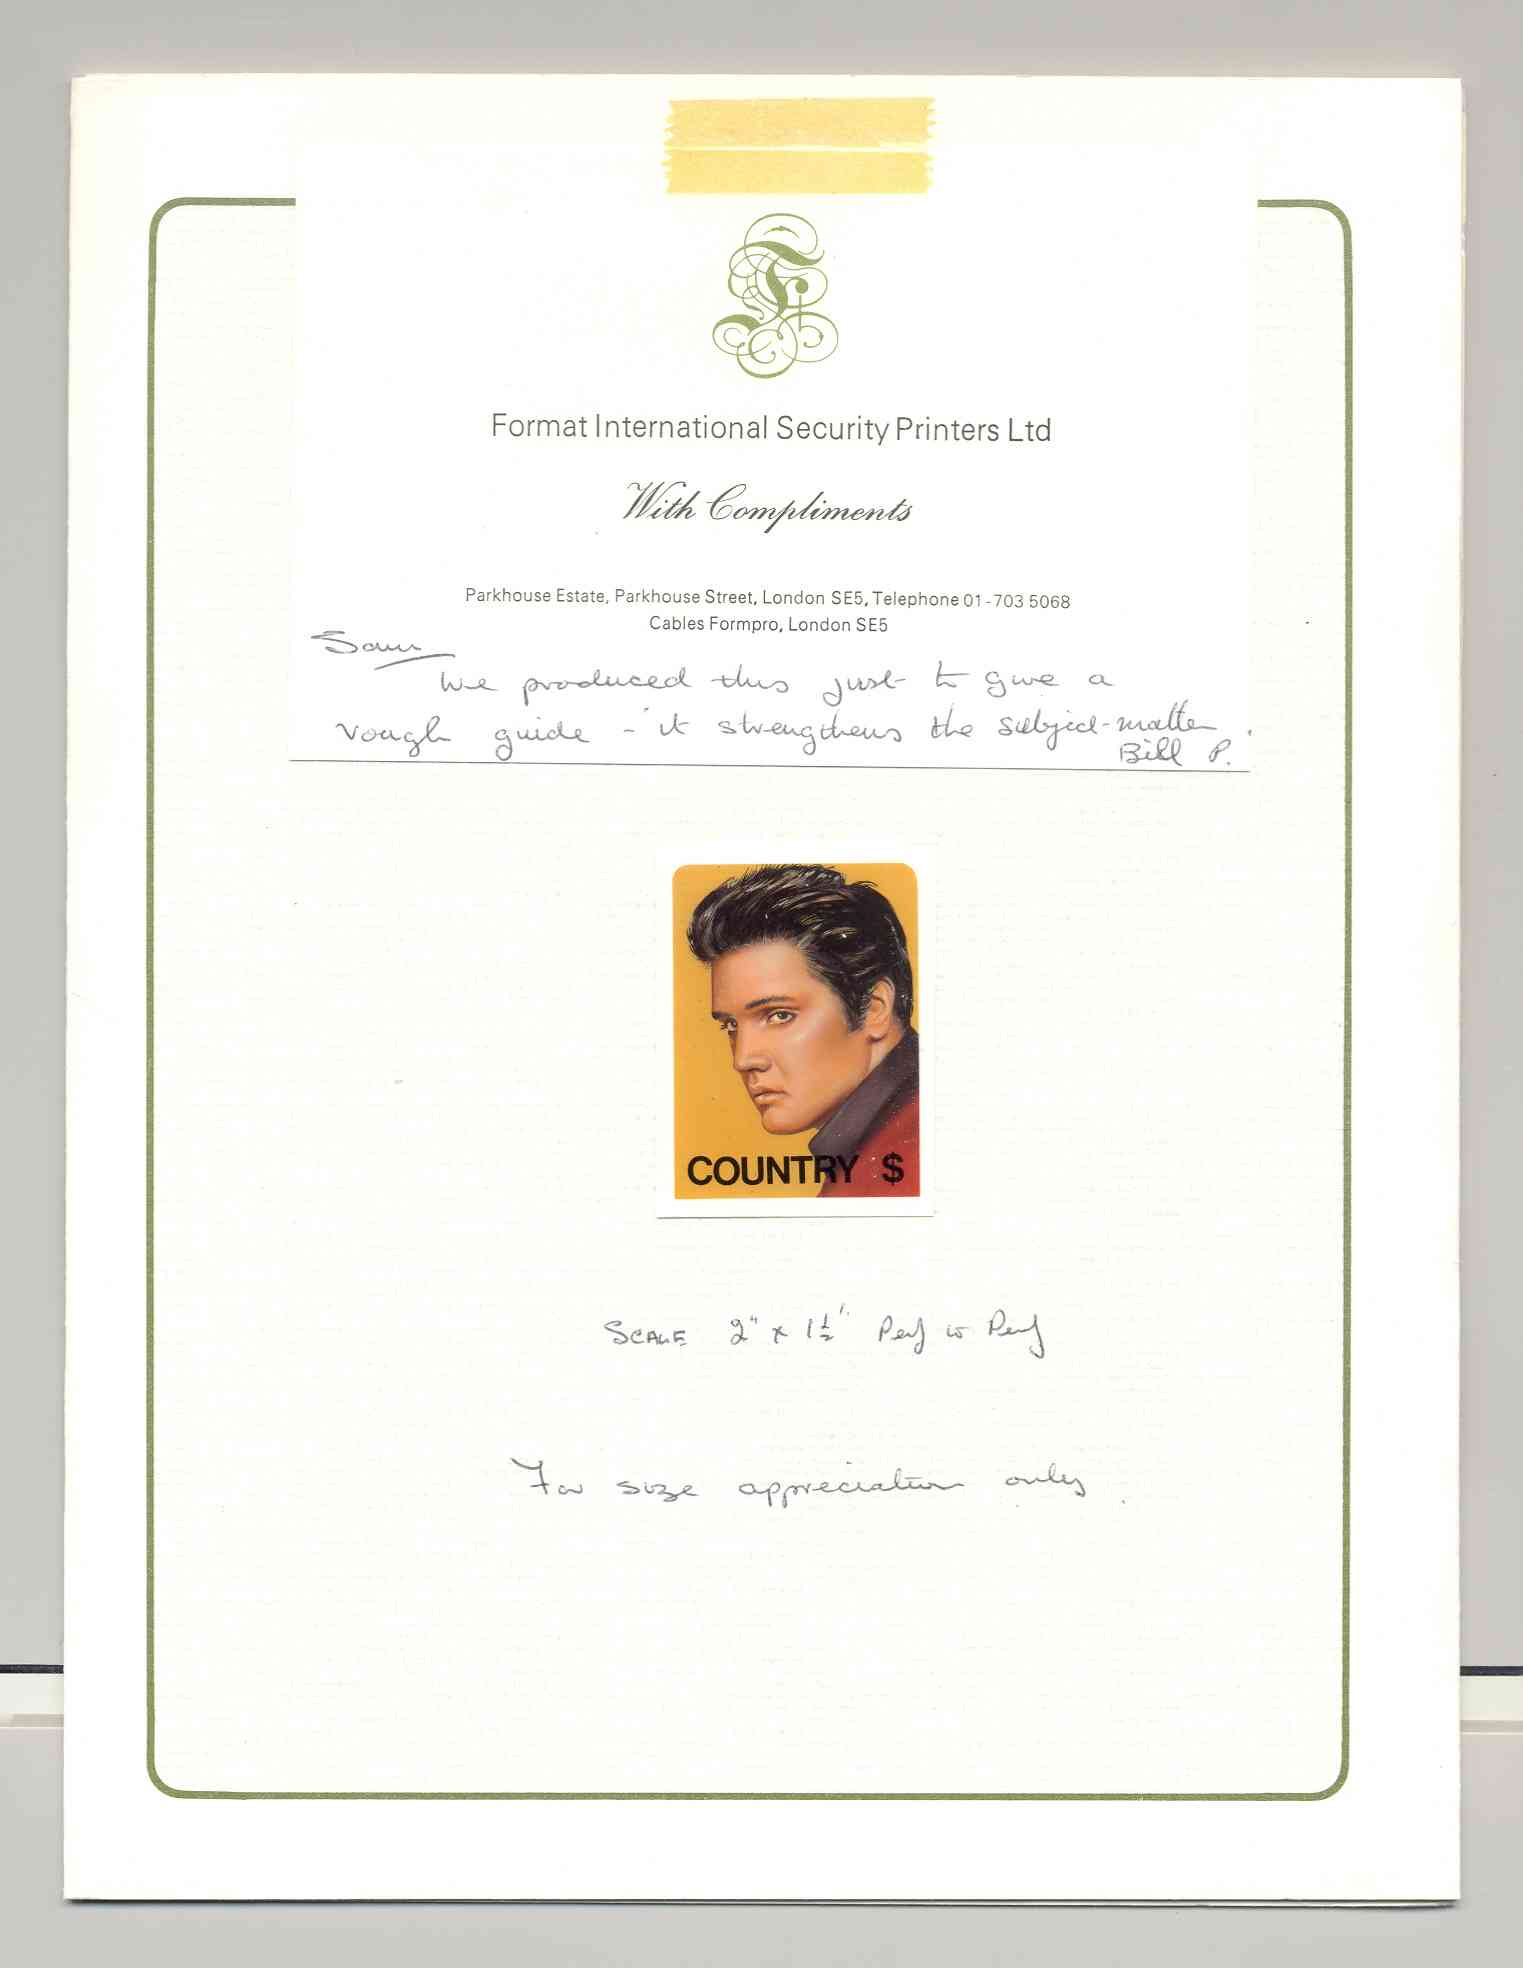 Format International Security Printers Ltd
With Compliments
Parkhouse Estate, Parkhouse Street, London SE5, Telephone 01-703 5068
Cables Formpro, London SE5
Sam
We produced this just to give a
rough guide - it strengthens the subject-matter.
Bill P.
COUNTRY $
SCALE 2" x 1½" Perf to Perf
For size appreciation only.